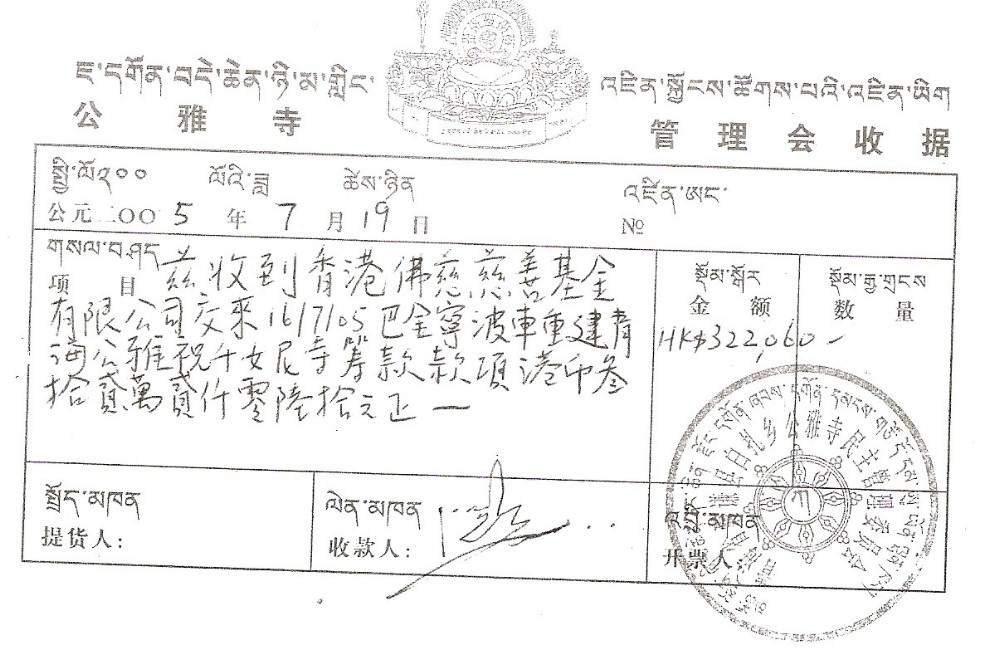 ང་དགོན་བདེ་ཆེན་ཉི་མ་གླིང་
འཛིན་སྐྱོངས་ཚོགས་པའི་འཛིན་ཡིག
公雅寺
管理会收据
སྤྱི་ལོ༢༠༠ ལོའི་ཟླ ཚེས་ཉིན འཛིན་ཨང་
公元二〇〇5年7月19日 №
གསལ་བཤད
项目
兹收到香港佛慈慈善基金
有限公司交來16/7/05巴金寧波車重建青
海公雅祝千女尼寺籌款款項港币叁
拾貳萬貳仟零陸拾元正一
སྡོམ་སྒོར
金额
HK$322,060-
སྡོམ་རྒྱ་གྲངས
数量
སྤྲོད་མཁན
提货人:
ལེན་མཁན
收款人:
འབྲི་མཁན
开票人:
白扎乡公雅寺民主管理委员会